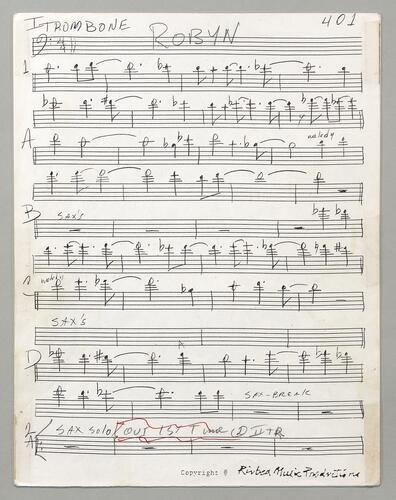 I TROMBONE
ROBYN
401
1
A
melody
B SAX'S
melody
SAX'S
A
D
SAX-BREAK
2 SAX solo (OUT 1ST Time
A
Copyright @ Rivbea Music Productions